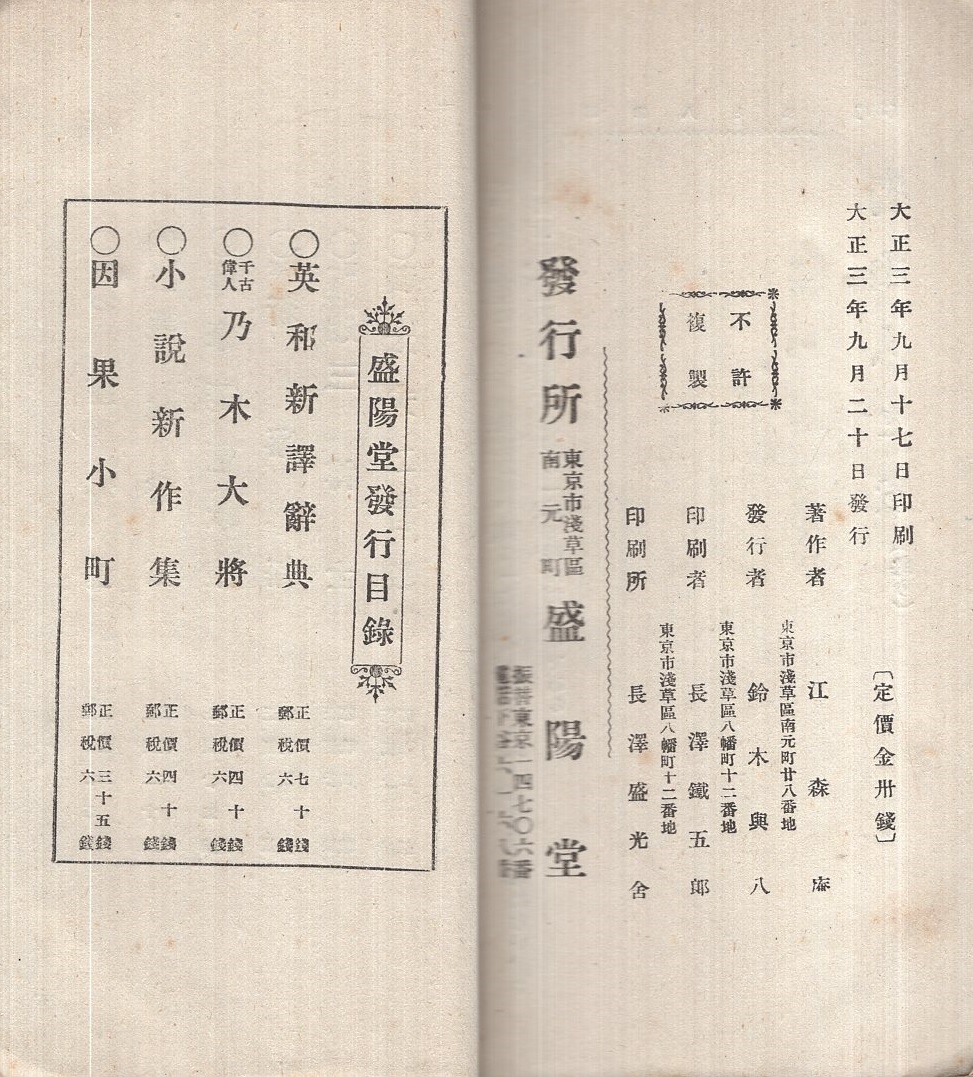 大正三年九月十七日印刷
大正三年九月二十日發行
〔定價金卅錢〕
不許
複製
著作者　江森庵
東京市淺草區南元町廿八番地
發行者　鈴木與八
東京市淺草區八幡町十二番地
印刷者　長澤鐵五郎
東京市淺草區八幡町十二番地
印刷所　長澤盛光舍
發行所
東京市淺草區
南元町
盛陽堂
振替東京一四七〇六番
電話下谷
盛陽堂發行目錄
〇英和新譯辭典　正價七十錢　郵稅六錢
〇千古偉人　乃木大將　正價四十錢　郵稅六錢
〇小說新作集　正價四十錢　郵稅六錢
〇因果小町　正價三十五錢　郵稅六錢